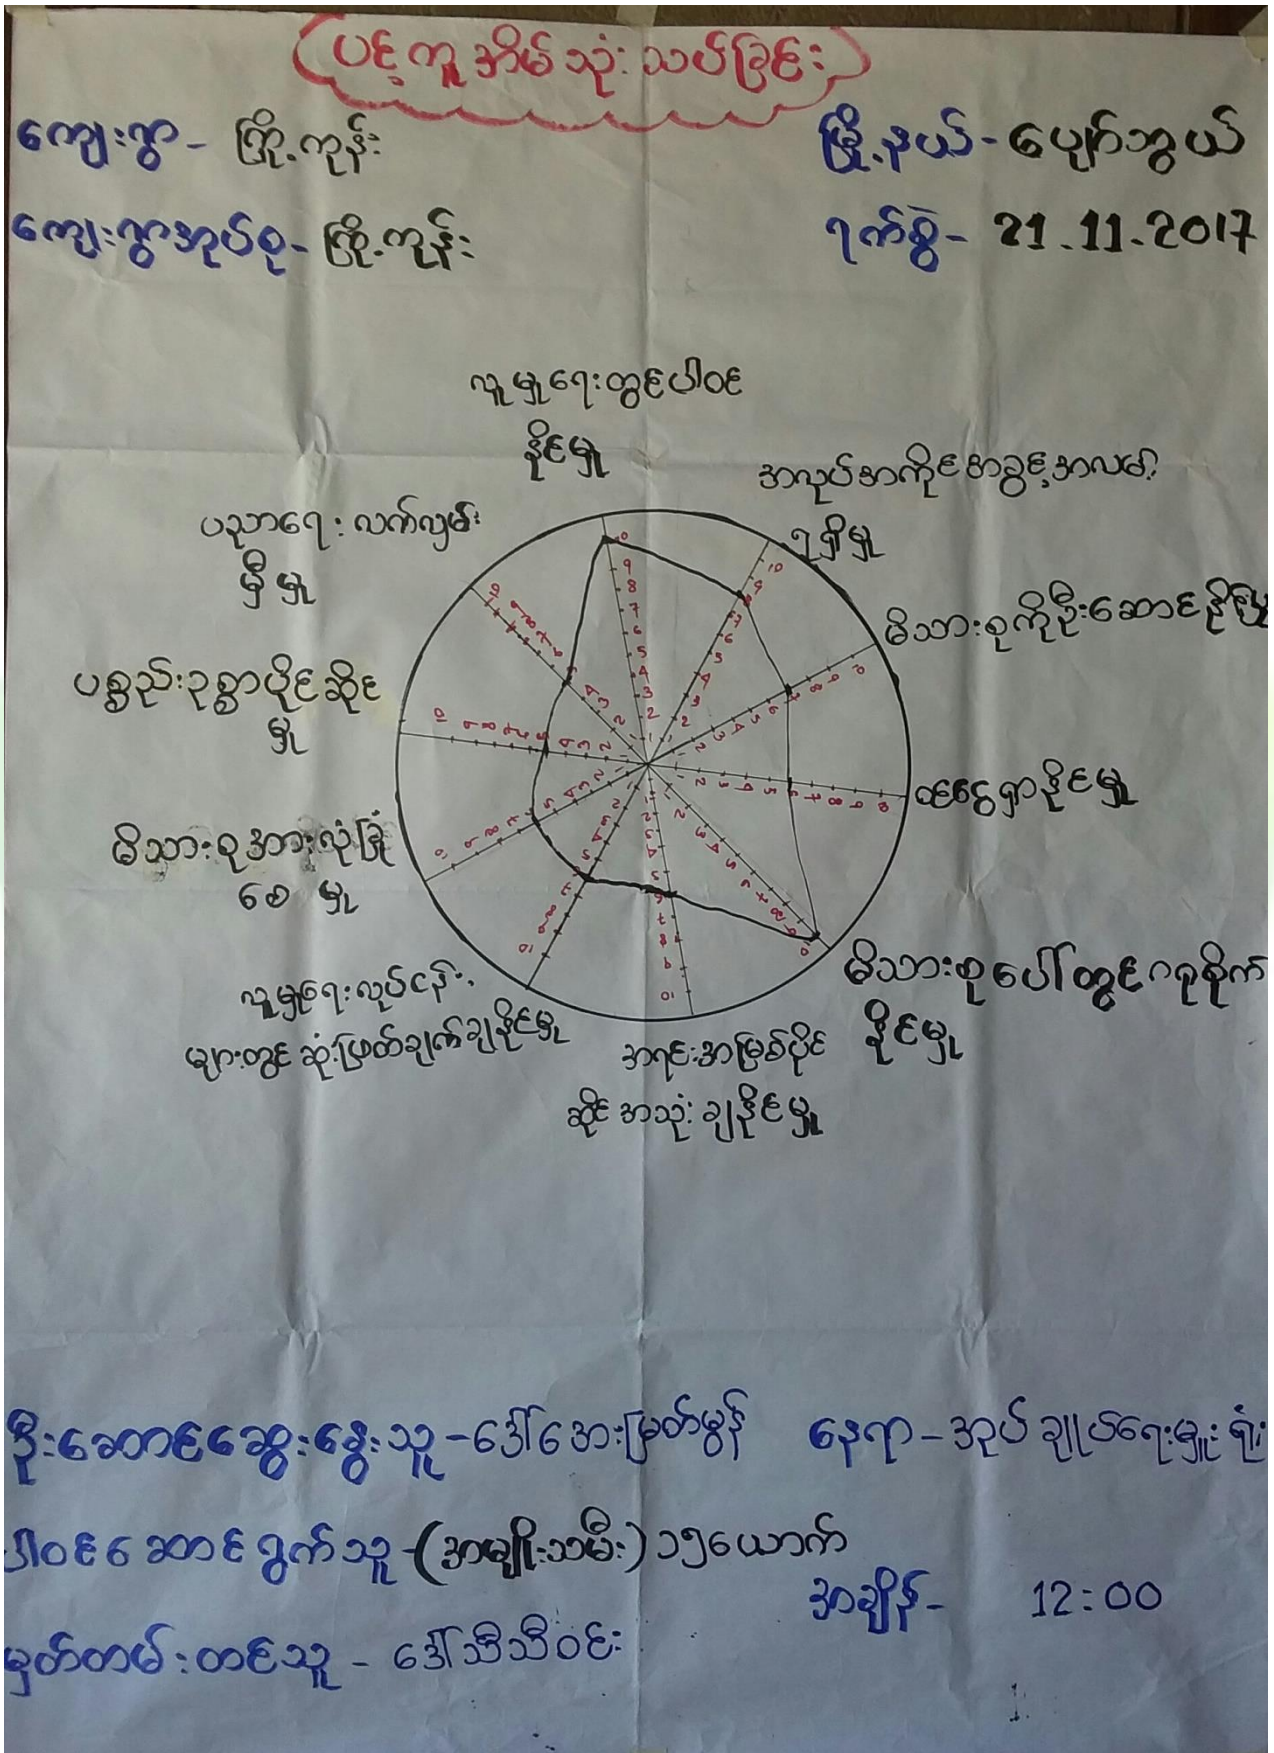 ပင့်ကူအိမ်သုံးသပ်ခြင်း
ကျေးရွာ - ကြို့ကုန်း
မြို့နယ် - ပျော်ဘွယ်
ကျေးရွာအုပ်စု - ကြို့ကုန်း
ရက်စွဲ - 21.11.2017
လူမှုရေးတွင်ပါဝင်
နိုင်မှု
အလုပ်အကိုင်အခွင့်အလမ်း
ရရှိမှု
မိသားစုကိုဦးဆောင်နိုင်မှု
ဝင်ငွေရှာနိုင်မှု
မိသားစုပေါ်တွင်ဂရုစိုက်
နိုင်မှု
အရင်းအမြစ်ပိုင်
ဆိုင်အသုံးချနိုင်မှု
လူမှုရေးလုပ်ငန်း
များတွင်ဆုံးဖြတ်ချက်ချနိုင်မှု
မိသားစုအားလုံခြုံ
စေမှု
ပစ္စည်းဥစ္စာပိုင်ဆိုင်
မှု
ပညာရေးလက်လှမ်း
မှီမှု
ဦးဆောင်ဆွေးနွေးသူ - ဒေါ်အေးမြတ်မွန်
နေရာ - အုပ်ချုပ်ရေးမှူးရုံး
ပါဝင်ဆောင်ရွက်သူ - (အမျိုးသမီး) ၁၅ယောက်
အချိန် - 12:00
မှတ်တမ်းတင်သူ - ဒေါ်သီသီဝင်း